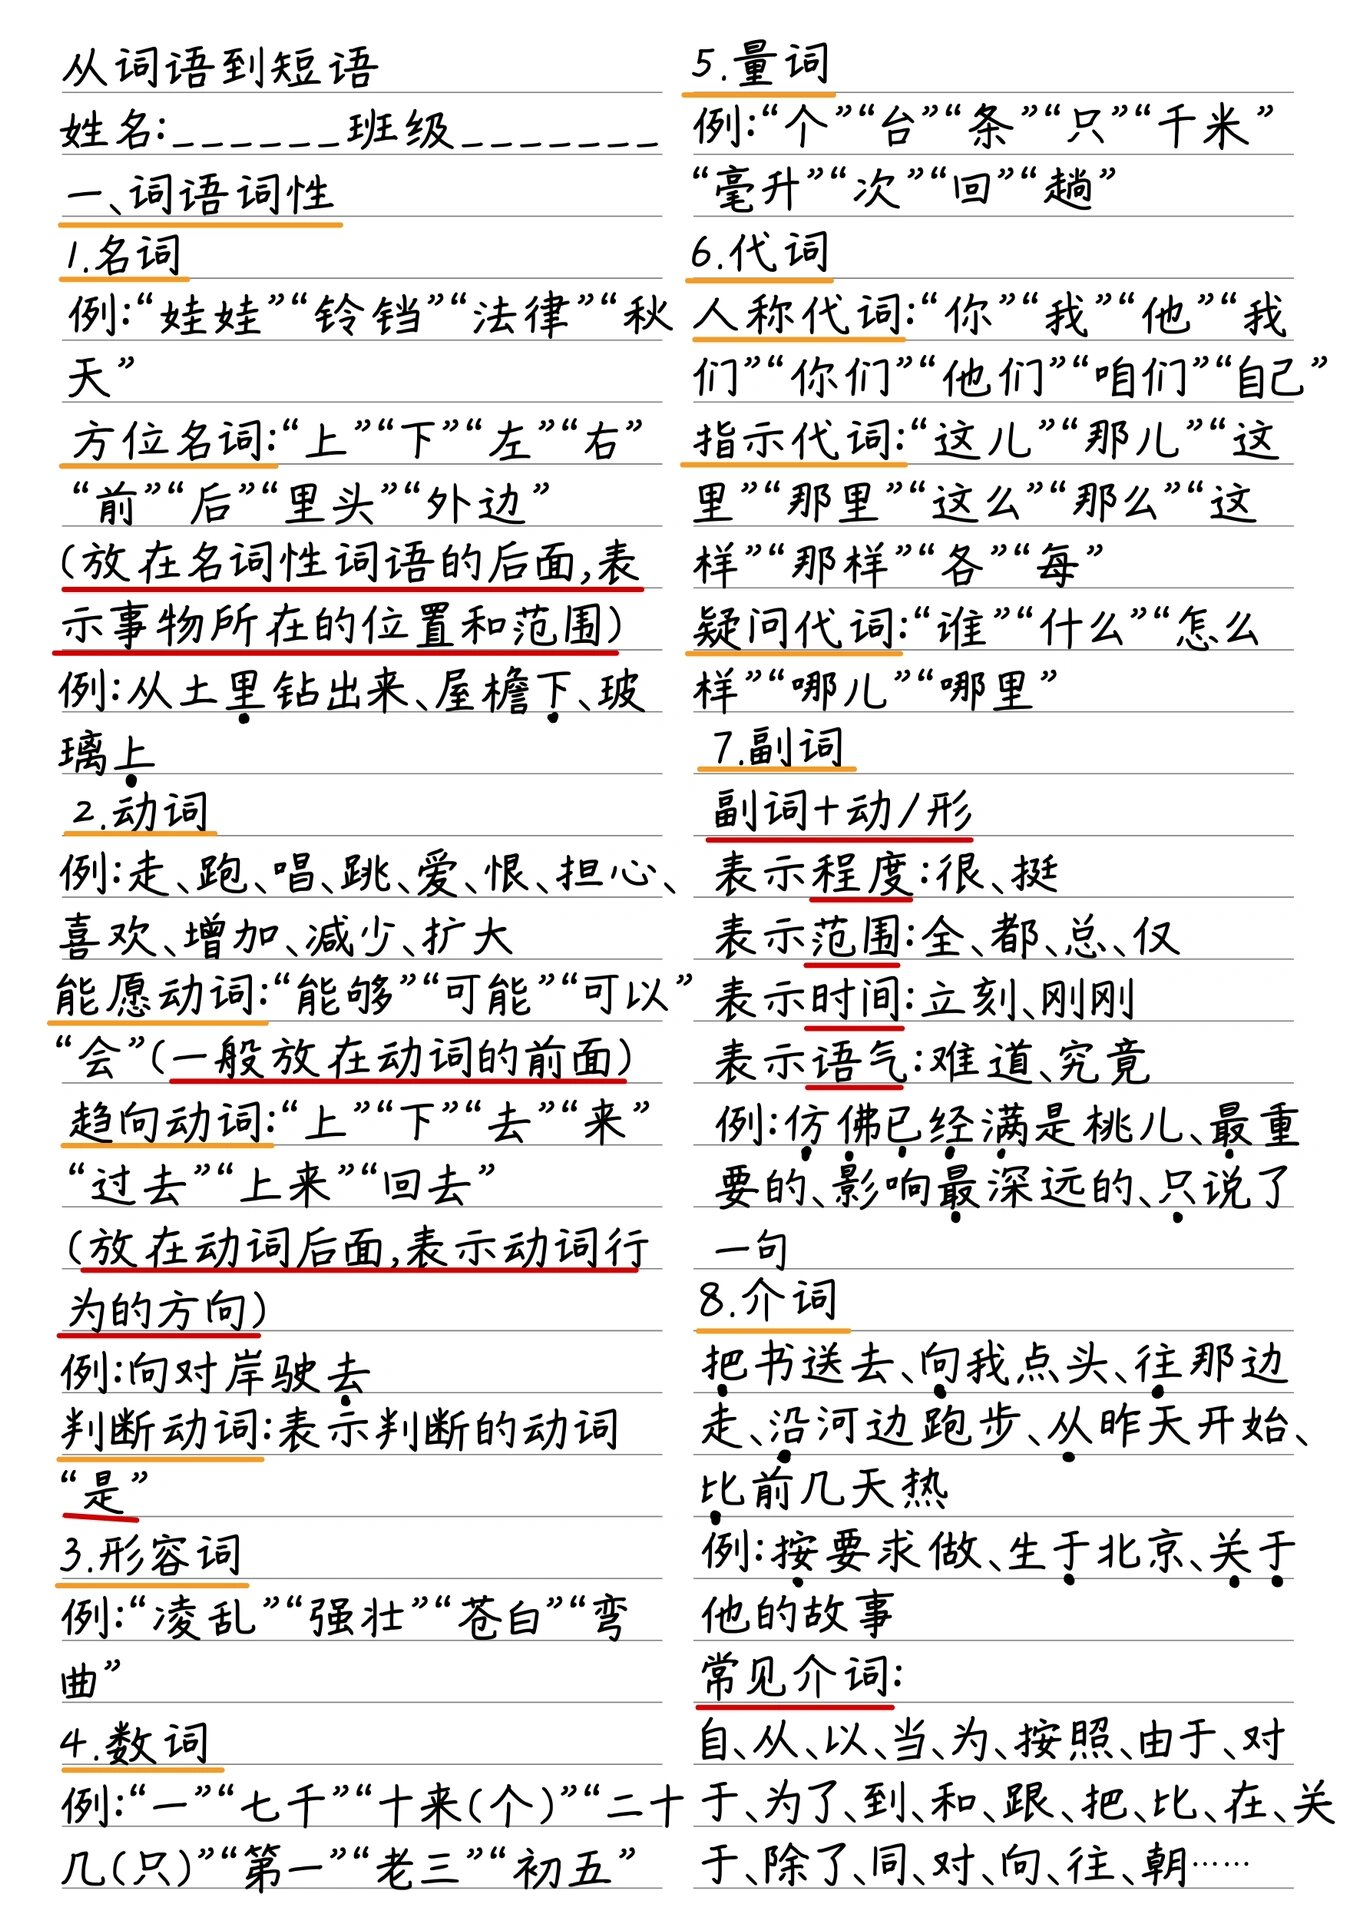 从词语到短语
姓名:______班级_______
一、词语词性
1.名词
例:“娃娃”“铃铛”“法律”“秋
天”
方位名词:“上”“下”“左”“右”
“前”“后”“里头”“外边”
(放在名词性词语的后面,表
示事物所在的位置和范围)
例:从土里钻出来、屋檐下、玻
璃上
2.动词
例:走、跑、唱、跳、爱、恨、担心、
喜欢、增加、减少、扩大
能愿动词:“能够”“可能”“可以”
“会”(一般放在动词的前面)
趋向动词:“上”“下”“去”“来”
“过去”“上来”“回去”
(放在动词后面,表示动词行
为的方向)
例:向对岸驶去
判断动词:表示判断的动词
“是”
3.形容词
例:“凌乱”“强壮”“苍白”“弯
曲”
4.数词
例:“一”“七千”“十来(个)”“二十
几(只)”“第一”“老三”“初五”
5.量词
例:“个”“台”“条”“只”“千米”
“毫升”“次”“回”“趟”
6.代词
人称代词:“你”“我”“他”“我
们”“你们”“他们”“咱们”“自己”
指示代词:“这儿”“那儿”“这
里”“那里”“这么”“那么”“这
样”“那样”“各”“每”
疑问代词:“谁”“什么”“怎么
样”“哪儿”“哪里”
7.副词
副词+动/形
表示程度:很、挺
表示范围:全、都、总、仅
表示时间:立刻、刚刚
表示语气:难道、究竟
例:仿佛已经满是桃儿、最重
要的、影响最深远的、只说了
一句
8.介词
把书送去、向我点头、往那边
走、沿河边跑步、从昨天开始、
比前几天热
例:按要求做、生于北京、关于
他的故事
常见介词:
自、从、以、当、为、按照、由于、对
于、为了、到、和、跟、把、比、在、关
于、除了、同、对、向、往、朝……